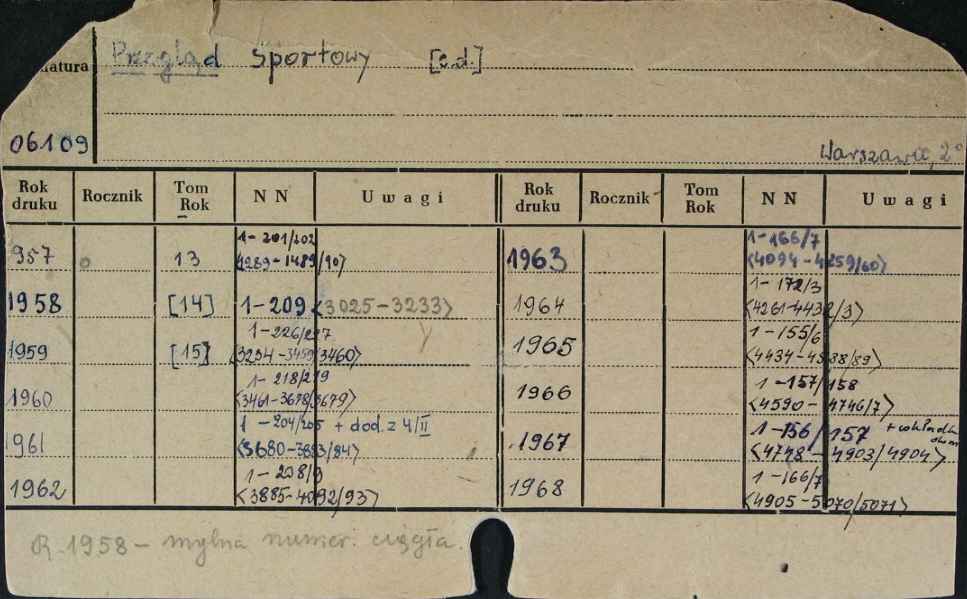 Przegląd Sportowy [c.d.]
atura
06109
Warszawa, 2°
Rok druku Rocznik Tom Rok NN Uwagi Rok druku Rocznik Tom Rok NN Uwagi
957 13 1-201/202 <1289-1489/90> 1963 1-166/7 <4094-4259/60>
1958 [14] 1-209 <3025-3233> 1964 1-172/3 <4261-4432/3>
1959 [15] 1-226/227 <3234-3459/3460> 1965 1-155/6 <4434-4588/89>
1960 1-218/219 <3461-3678/3679> 1966 1-157/158 <4590-4746/7>
961 1-204/205 + dod. z 4/II <3680-3883/84> 1967 1-156/157 + <4748-4903/4904>
1962 1-208/9 <3885-4092/93> 1968 1-166/7 <4905-5070/5071>
R. 1958 - mylna numer. ciągła.